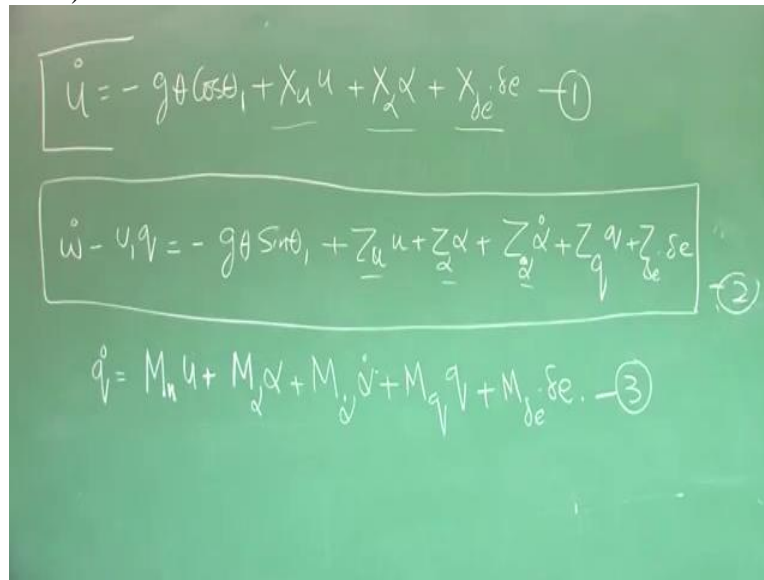 u̇ = - gθ Cosθ₁ + Xᵤ u + X_α α + X_δe · δe - ①
ẇ - U₁ q = - gθ Sinθ₁ + Zᵤ u + Z_α α + Z_α̇ α̇ + Z_q q + Z_δe · δe - ②
q̇ = Mᵤ u + M_α α + M_α̇ α̇ + M_q q + M_δe · δe. - ③